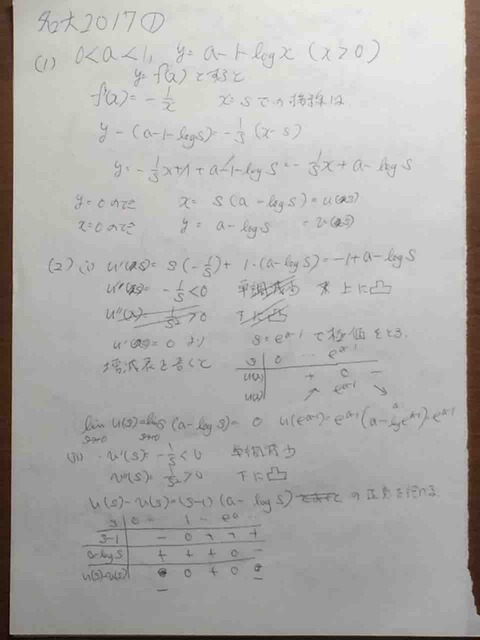 名大2017①
(1) 0<a<1, y=a-1-logx (x>0)
y=f(x)とすると
f'(x)=-1/x x=sでの接線は
y-(a-1-logs)=-1/s(x-s)
y=-1/s x+1+a-1-logs=-1/s x+a-logs
y=0のとき x=s(a-logs)=u(s)
x=0のとき y=a-logs =v(s)
(2) (i) u'(s)=s(-1/s)+1・(a-logs)=-1+a-logs
u''(s)=-1/s<0 単調減少 上に凸
u'''(s)=1/s²>0 下に凸
u'(s)=0より s=e^{a-1}で極値をとる.
増減表を書くと
s 0 … e^{a-1}
u'(s) + 0 -
u(s) ↗ e^{a-1} ↘
lim_{s→0} u(s)=lim_{s→0} s(a-logs)=0 u(e^{a-1})=e^{a-1}(a-loge^{a-1})=e^{a-1}
(ii) v'(s)=-1/s<0 単調減少
v''(s)=1/s²>0 下に凸
u(s)-v(s)=(s-1)(a-logs) の正負を
s 0 … 1 … e^a
s-1 - 0 + + +
a-logs + + + 0 -
u(s)-v(s) - 0 + 0 -